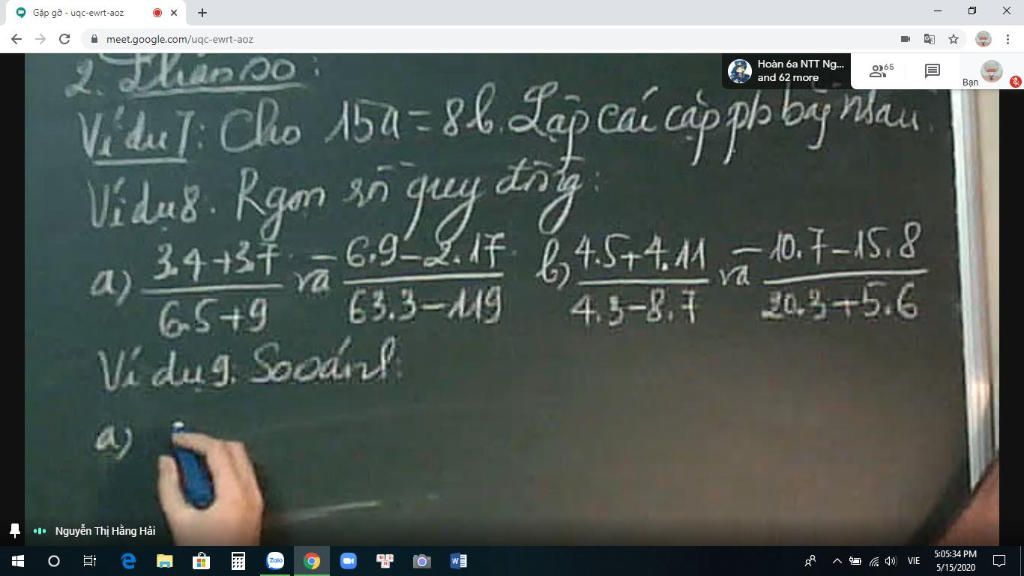 Gặp gỡ - uqc-ewrt-aoz
meet.google.com/uqc-ewrt-aoz
Hoàn 6a NTT Ng...
and 62 more
65
Bạn
2. Phân số:
Ví dụ 7: Cho 15a = 8b. Lập các cặp ps bằng nhau.
Ví dụ 8. Rgọn rồi quy đồng:
a) 3.4+3.7 / 6.5+9 và 6.9-2.17 / 63.3-119 b) 4.5+4.11 / 4.3-8.7 và -10.7-15.8 / 20.3+5.6
Ví dụ 9. So sánh:
a)
Nguyễn Thị Hằng Hải
VIE
5:05:34 PM
5/15/2020